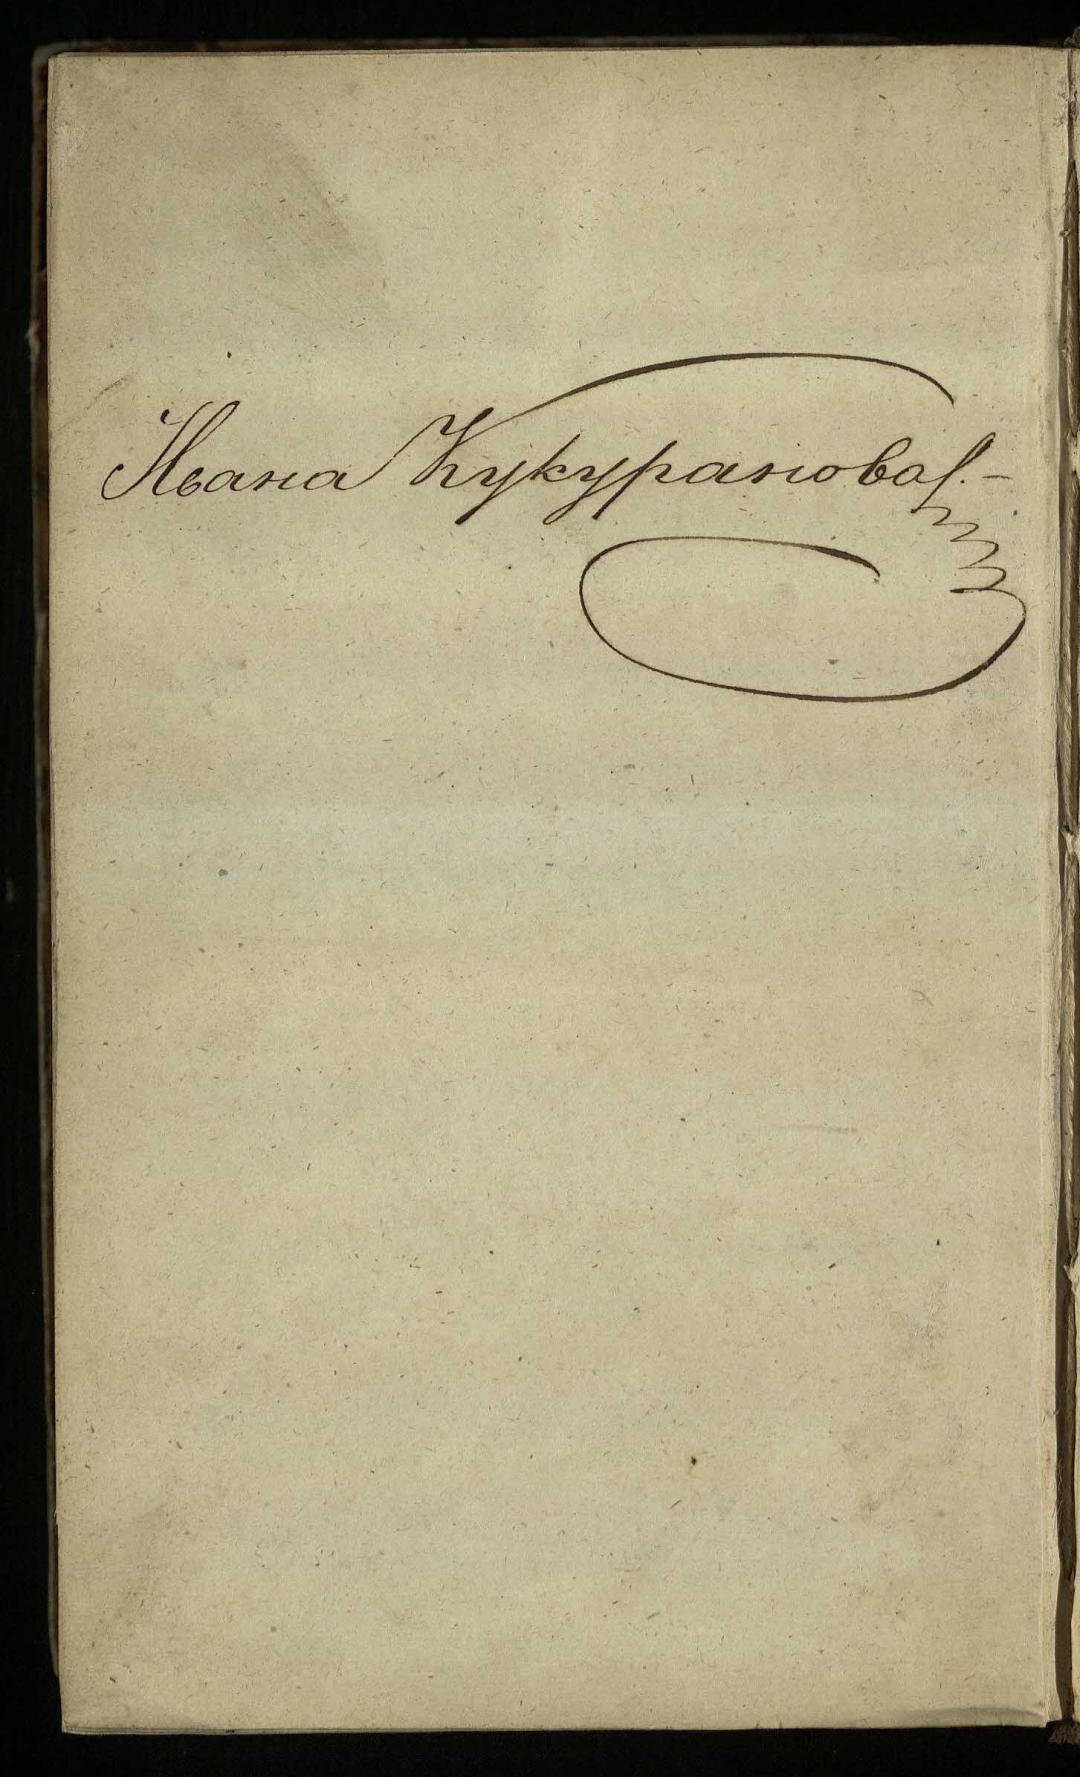 Ивана Кукуранова.-